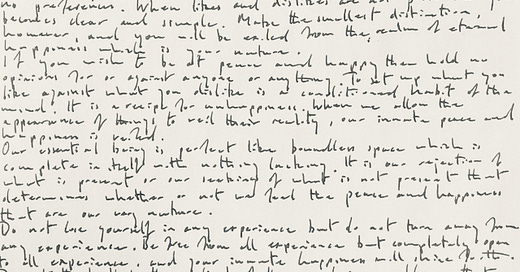 no preferences. When likes and dislikes are not
becomes clear and simple. Make the smallest distinction,
however, and you will be exiled from the realm of eternal
happiness which is your nature.
If you wish to be at peace and happy then hold no
opinions for or against anyone or anything. To set up what you
like against what you dislike is a conditioned habit of the
mind. It is a recipe for unhappiness. When we allow the
appearance of things to veil their reality, our innate peace and
happiness is veiled.
Our essential being is perfect like boundless space which is
complete in itself with nothing lacking. It is our rejection of
what is present or our seeking of what is not present that
determines whether or not we feel the peace and happiness
that are our very nature.
Do not lose yourself in any experience but do not turn away from
any experience. Be free from all experience but completely open
to all experience, and your innate happiness will shine forth.